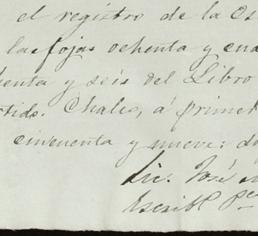 el registro de la Es
las fojas ochenta y cua
henta y seis del Libro
rtido. Chalco, á primer
cincuenta y nueve: d
Lic. José